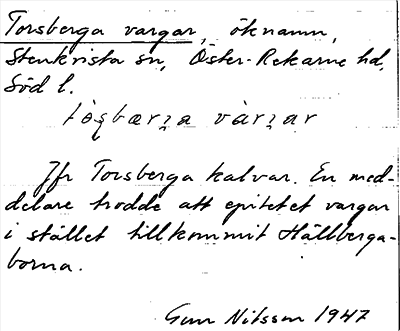 Torsberga vargar, öknamn,
Stenkvista sn, Öster-Rekarne hd,
Södl.
vàrgar
Jfr Torsberga kalvar. En med-
delare trodde att epitetet vargar
i stället tillkommit Hällberga-
borna.
Gun Nilsson 1947